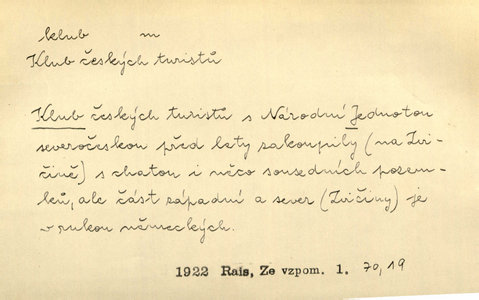 klub m
Klub českých turistů
Klub českých turistů s Národní Jednotou
severočeskou před lety zakoupily (na Zvi-
čině) s chatou i něco sousedních pozem-
ků, ale část západní a sever (Zvičiny) je
v rukou německých.
1922 Rais, Ze vzpom. 1. 70, 19